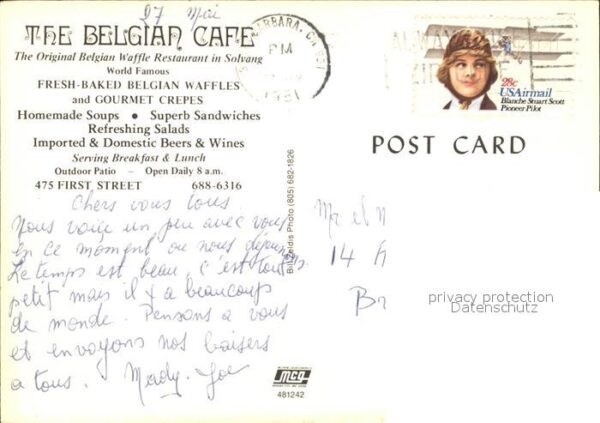 27 Mai
THE BELGIAN CAFE
The Original Belgian Waffle Restaurant in Solvang
World Famous
FRESH-BAKED BELGIAN WAFFLES
and GOURMET CREPES
Homemade Soups • Superb Sandwiches
Refreshing Salads
Imported & Domestic Beers & Wines
Serving Breakfast & Lunch
Outdoor Patio – Open Daily 8 a.m.
475 FIRST STREET 688-6316
Chers vous tous.
Nous voici un peu avec vous
en ce moment ou nous
Le temps est beau, c'est tout
petit mais il y a beaucoup
de monde. Pensons a vous
et envoyons nos baisers
a tous. Mady. Joe
Photo (805) 682-1826
mcg
481242
BARBARA, CA
PM
1981
28c
USAirmail
Blanche Stuart Scott
Pioneer Pilot
POST CARD
Mr et
14
privacy protection
Datenschutz